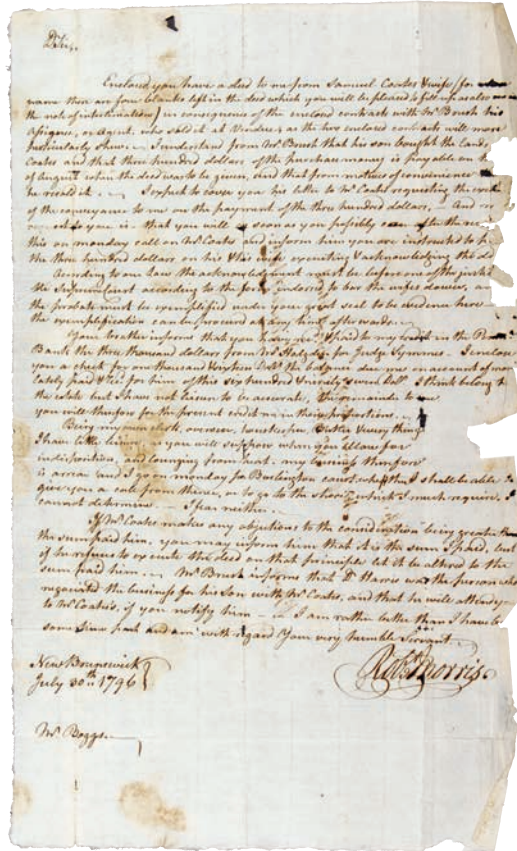 D. Sir,
Enclosed you have a deed to me from Samuel Coates & wife (for whose
name there are four blanks left in the deed which you will be pleased to fill up as also
the note of interlineation) in consequence of the enclosed contracts with Mr. Brush his
Assignee, or Agent, who sold it at Vendue, as the two enclosed contracts will more
particularly shew. I understand from Mr. Brush that his son bought the Land
Coates and that three hundred dollars of the purchase money is payable on
of August when the deed was to be given, and that from motives of convenience
he resold it. I expect to cover you his letter to Mr. Coates requesting the
of the conveyance to me on the payment of the three hundred dollars. And
to you is that you will as soon as you possibly can after the
this on monday call on Mr. Coates and inform him you are instructed to
the three hundred dollars on his & his wife executing & acknowledging the
According to our law the acknowledgment must be before one of the
the Supreme Court according to the form endorsed to bar the wifes dower, and
the probate must be exemplified under your great seal to be evidence here
the exemplification can be procured at any time afterwards.
Your brother informs that you have paid to my credit in the
Bank the three thousand dollars from Mr. for Judge Symmes. I enclose
you a check for one thousand Dolls. the balance due me on account of
lately paid for him of this six hundred twenty seven Doll. I think belong to
the estate but I have not to be accurate, the remainder to me
you will therefore for the present credit me in those proportions.
Being my own clerk, overseer, housekeeper, & every thing
I have little leisure, as you will suppose when you allow for
indisposition, and lounging from heat. my business therefore
is arrear and I go on monday for Burlington court, whether I shall be able to
give you a call from thence, or to go to the shore which I much require, I
cannot determine. I fear neither.
If Mr. Coates makes any objections to the consideration being greater than
the sum paid him, you may inform him that it is the sum I paid, but
if he refuses to execute the deed on that principle let it be altered to the
sum paid him. Mr. Brush informs that D. Harris was the person who
negociated the business for his Son with Mr. Coates, and that he will attend you
to Mr. Coates's, if you notify him. I am rather better than I have been
some time past and am with regard Your very humble Servant
Robt. Morris
New Brunswick
July 30th. 1796
Mr. Boggs